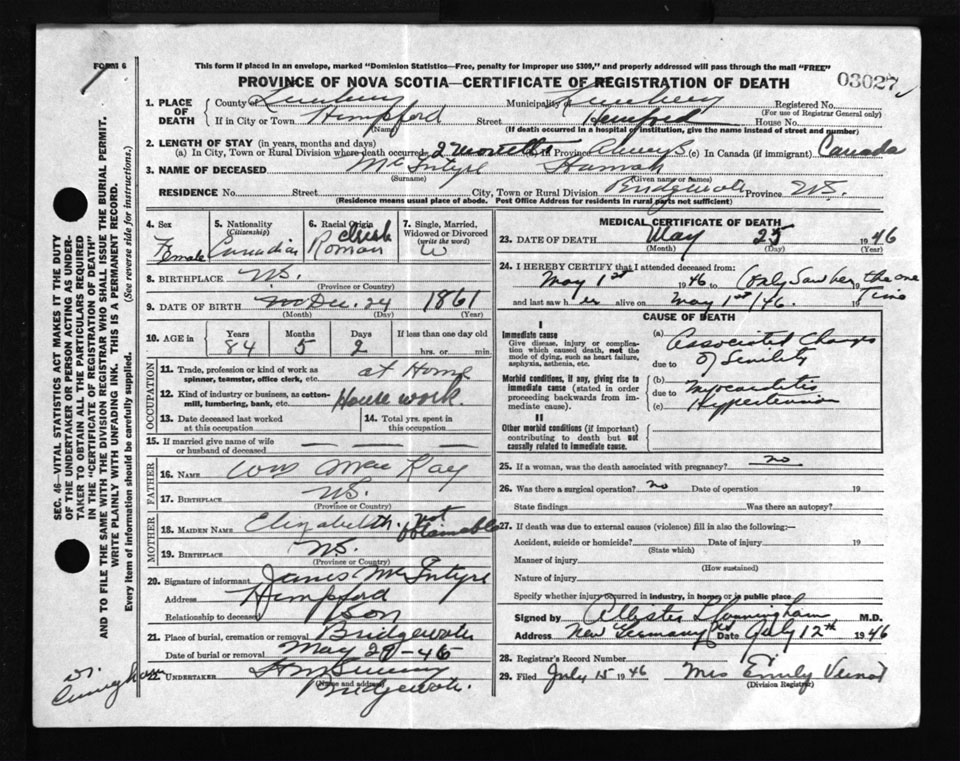 FORM 6
This form if placed in an envelope, marked "Dominion Statistics—Free, penalty for improper use $300," and properly addressed will pass through the mail "FREE"
PROVINCE OF NOVA SCOTIA—CERTIFICATE OF REGISTRATION OF DEATH
03027
1. PLACE OF DEATH
County of Lunenburg Municipality of Lunenburg Registered No.
(For use of Registrar General only)
If in City or Town Hempford Street Hemford House No.
(Name) (If death occurred in a hospital or institution, give the name instead of street and number)
2. LENGTH OF STAY (in years, months and days)
(a) In City, Town or Rural Division where death occurred 2 months (b) In Province Always (c) In Canada (if immigrant) Canada
3. NAME OF DECEASED McIntyre Hannah
(Surname) (Given name or names)
RESIDENCE No. Street City, Town or Rural Division Bridgewater Province N.S.
(Residence means usual place of abode. Post Office Address for residents in rural parts not sufficient)
4. Sex Female
5. Nationality (Citizenship) Canadian
6. Racial Origin Roman
7. Single, Married, Widowed or Divorced (write the word) W
8. BIRTHPLACE N.S.
(Province or Country)
9. DATE OF BIRTH Dec. 24 1861
(Month) (Day) (Year)
10. AGE in Years 84 Months 5 Days 2 If less than one day old hrs. or min.
OCCUPATION
11. Trade, profession or kind of work as spinner, teamster, office clerk, etc. at Home
12. Kind of industry or business, as cotton-mill, lumbering, bank, etc. House work
13. Date deceased last worked at this occupation
14. Total yrs. spent in this occupation
15. If married give name of wife or husband of deceased
FATHER
16. NAME Wm MacKay
17. BIRTHPLACE N.S.
MOTHER
18. MAIDEN NAME Elizabeth. Not obtainable
19. BIRTHPLACE N.S.
(Province or Country)
20. Signature of informant James McIntyre
Address Hempford
Relationship to deceased Son
21. Place of burial, cremation or removal Bridgewater
Date of burial or removal May 29-46
22. UNDERTAKER
(Name and address) Bridgewater.
MEDICAL CERTIFICATE OF DEATH
23. DATE OF DEATH May 25 1946
(Month) (Day) (Year)
24. I HEREBY CERTIFY that I attended deceased from:
May 1st 1946 to Only Saw her the one Time 19
and last saw her alive on May 1st /46. 19
CAUSE OF DEATH
I
Immediate cause
Give disease, injury or complication which caused death, not the mode of dying, such as heart failure, asphyxia, asthenia, etc.
Morbid conditions, if any, giving rise to immediate cause (stated in order proceeding backwards from immediate cause).
II
Other morbid conditions (if important) contributing to death but not causally related to immediate cause.
(a) Associated Changes
due to of Senility
(b) Myocarditis
due to
(c) Hypertension
25. If a woman, was the death associated with pregnancy? no
26. Was there a surgical operation? no Date of operation 19
State findings Was there an autopsy?
27. If death was due to external causes (violence) fill in also the following:—
Accident, suicide or homicide? Date of injury 19
(State which)
Manner of injury
(How sustained)
Nature of injury
Specify whether injury occurred in industry, in home or in public place.
Signed by Allister Cunningham M.D.
Address New Germany NS Date July 12th 1946
28. Registrar's Record Number
29. Filed July 15 1946 Mrs Emily
(Division Registrar)
SEC. 46—VITAL STATISTICS ACT MAKES IT THE DUTY
OF THE UNDERTAKER OR PERSON ACTING AS UNDERTAKER TO OBTAIN ALL THE PARTICULARS REQUIRED
IN THE "CERTIFICATE OF REGISTRATION OF DEATH"
AND TO FILE THE SAME WITH THE DIVISION REGISTRAR WHO SHALL ISSUE THE BURIAL PERMIT.
WRITE PLAINLY WITH UNFADING INK. THIS IS A PERMANENT RECORD.
Every item of information should be carefully supplied. (See reverse side for instructions.)
Dr. Cunningham